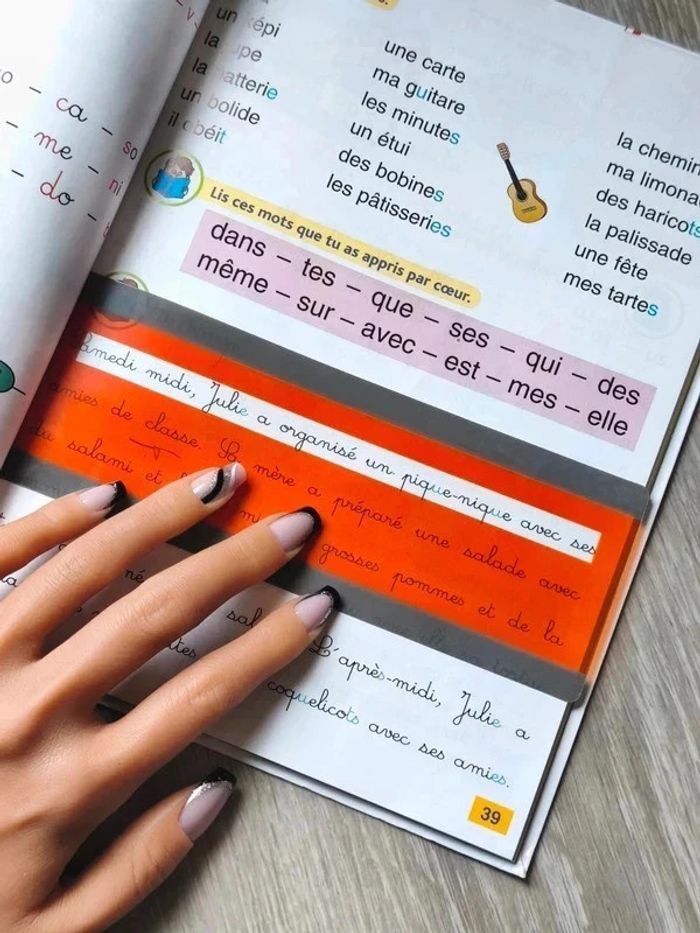 ca – so
me – ni
do –
un képi
la
la
un bolide
il obéit
une carte
ma guitare
les minutes
un étui
des bobines
les pâtisseries
la
ma
des haricots
la palissade
une fête
mes tartes
Lis ces mots que tu as appris par cœur.
dans – tes – que – ses – qui – des
même – sur – avec – est – mes – elle
Samedi midi, Julie a organisé un pique-nique avec ses
amies de classe. Sa mère a préparé une salade avec
du salami et grosses pommes et de la
L'après-midi, Julie a
coquelicots avec ses amies.
39